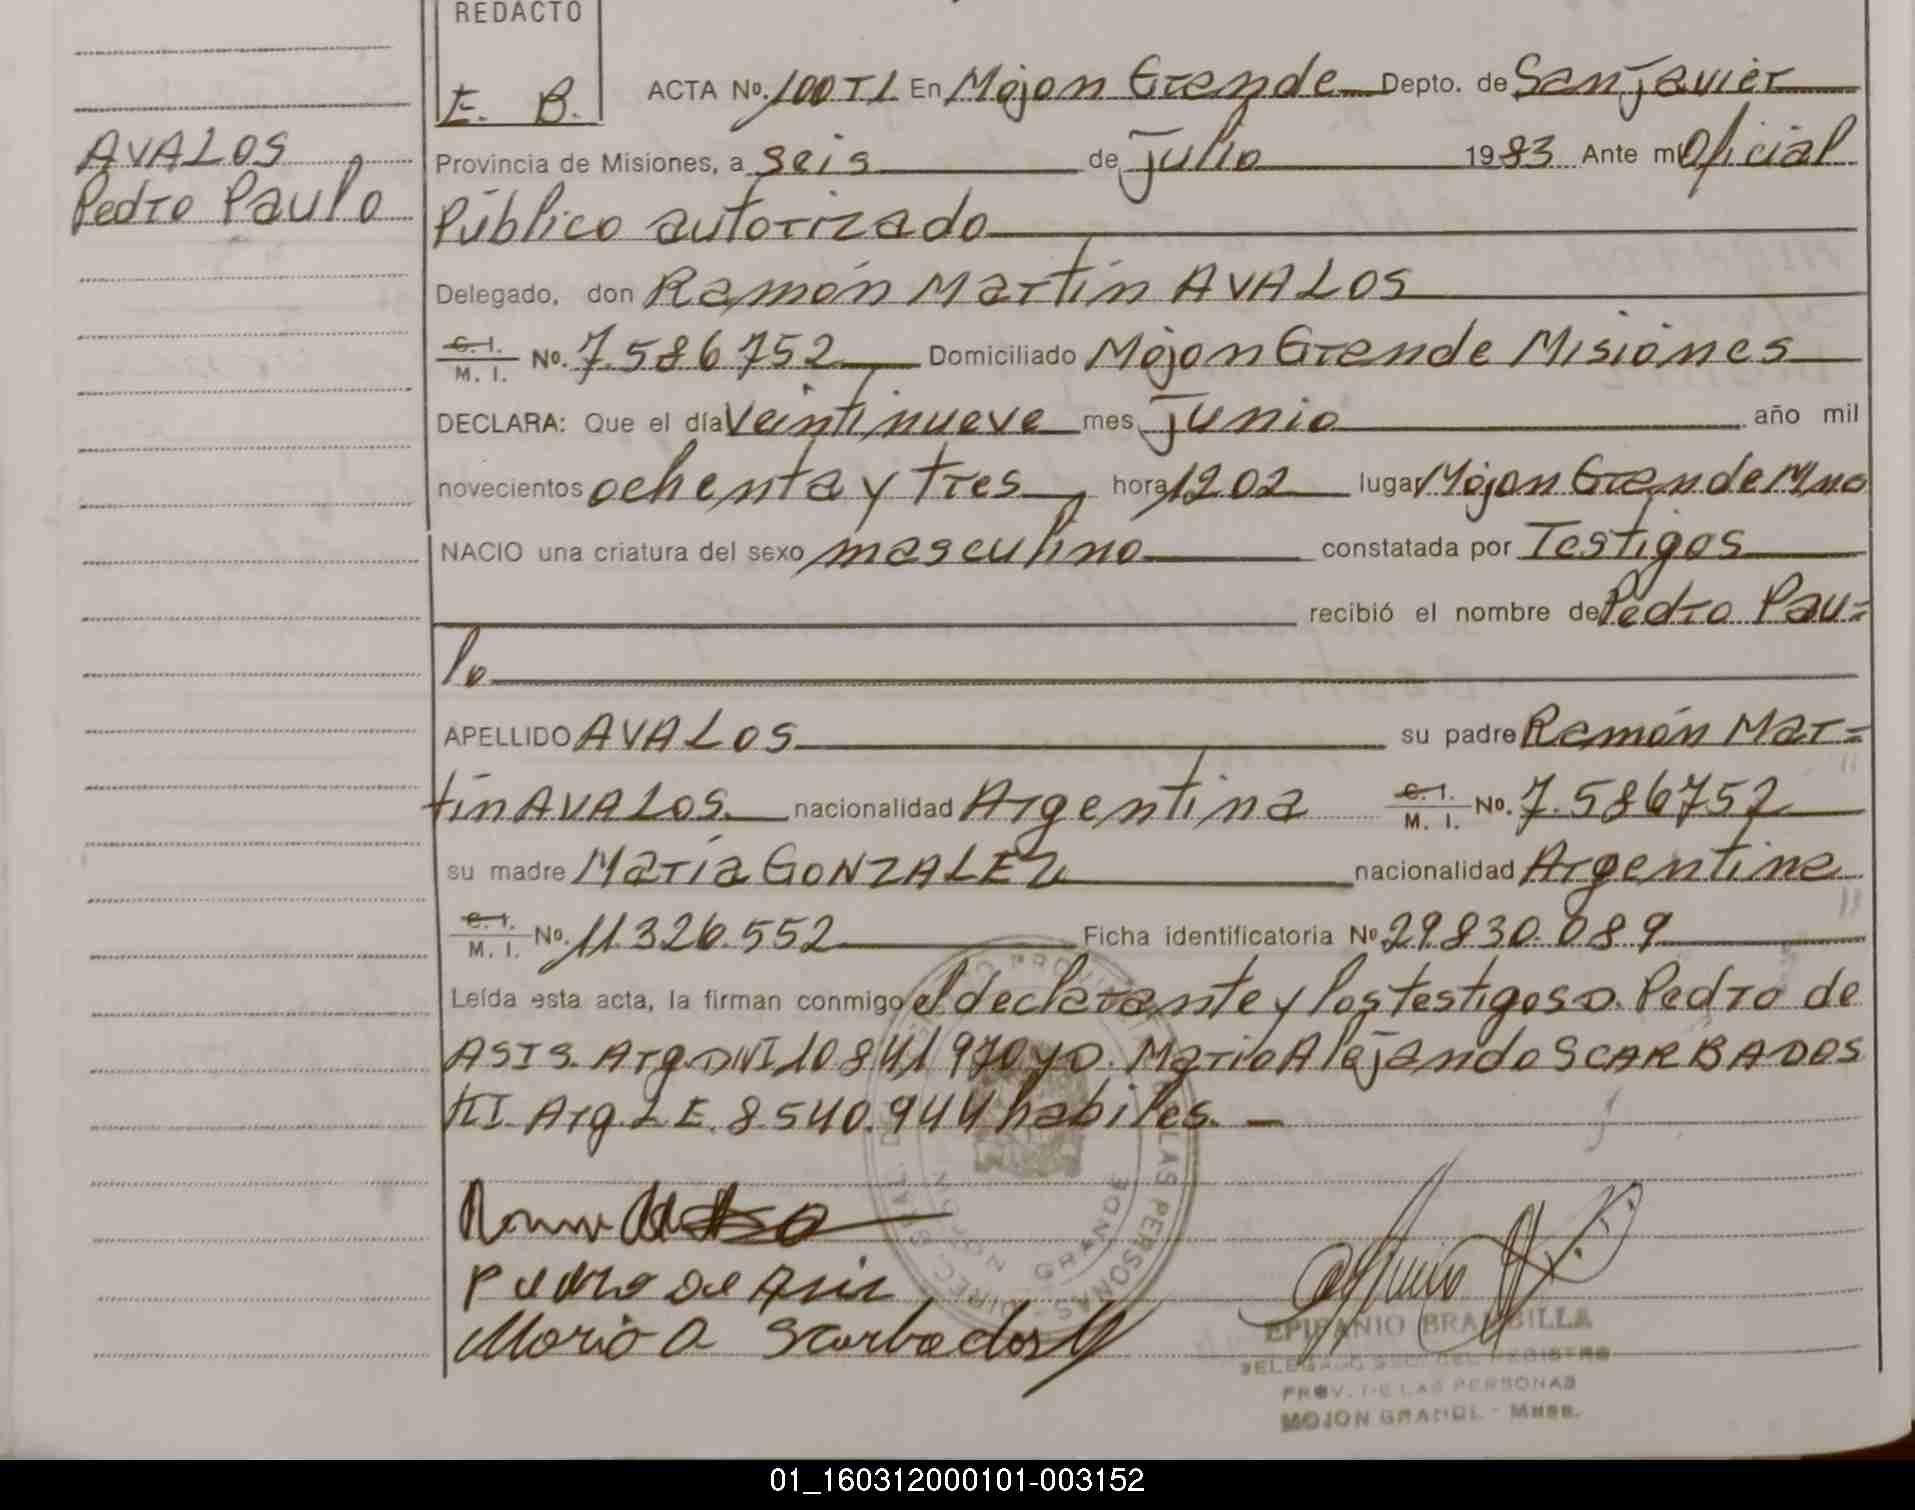 REDACTO
E. B.
AVALOS
Pedro Paulo
ACTA No. 100 T1 En Mojon Grande Depto. de San Javier
Provincia de Misiones, a seis de julio 1983 Ante mí Oficial
Público autorizado
Delegado, don Ramón Martín AVALOS
C. I.
M. I. No. 7.586752 Domiciliado Mojon Grande Misiones
DECLARA: Que el día veintinueve mes junio año mil
novecientos ochenta y tres, hora 1202 lugar Mojon Grande Mnes
NACIO una criatura del sexo masculino constatada por Testigos
recibió el nombre de Pedro Pau=
lo
APELLIDO AVALOS su padre Ramón Mar=
tín AVALOS. nacionalidad Argentina C. I.
M. I. No. 7.586752
su madre María GONZALEZ nacionalidad Argentina
C. I.
M. I. No. 11.326.552 Ficha identificatoria No 29.830.089
Leída esta acta, la firman conmigo el declarante y los testigos D. Pedro de
ASIS. Arg. DNI 10841970 y D. Mario Alejando SCARBADOS
KI. Arg. L E. 8.540.944 habiles. —
Pedro de Asis
Mario A Scarbados
DIREC. GRAL. DEL REGISTRO PROVINCIAL DE LAS PERSONAS
MOJON GRANDE
EPIFANIO BRAMBILLA
DELEGADO SECC. DEL REGISTRO
PROV. DE LAS PERSONAS
MOJON GRANDE - Mnes.
01_160312000101-003152